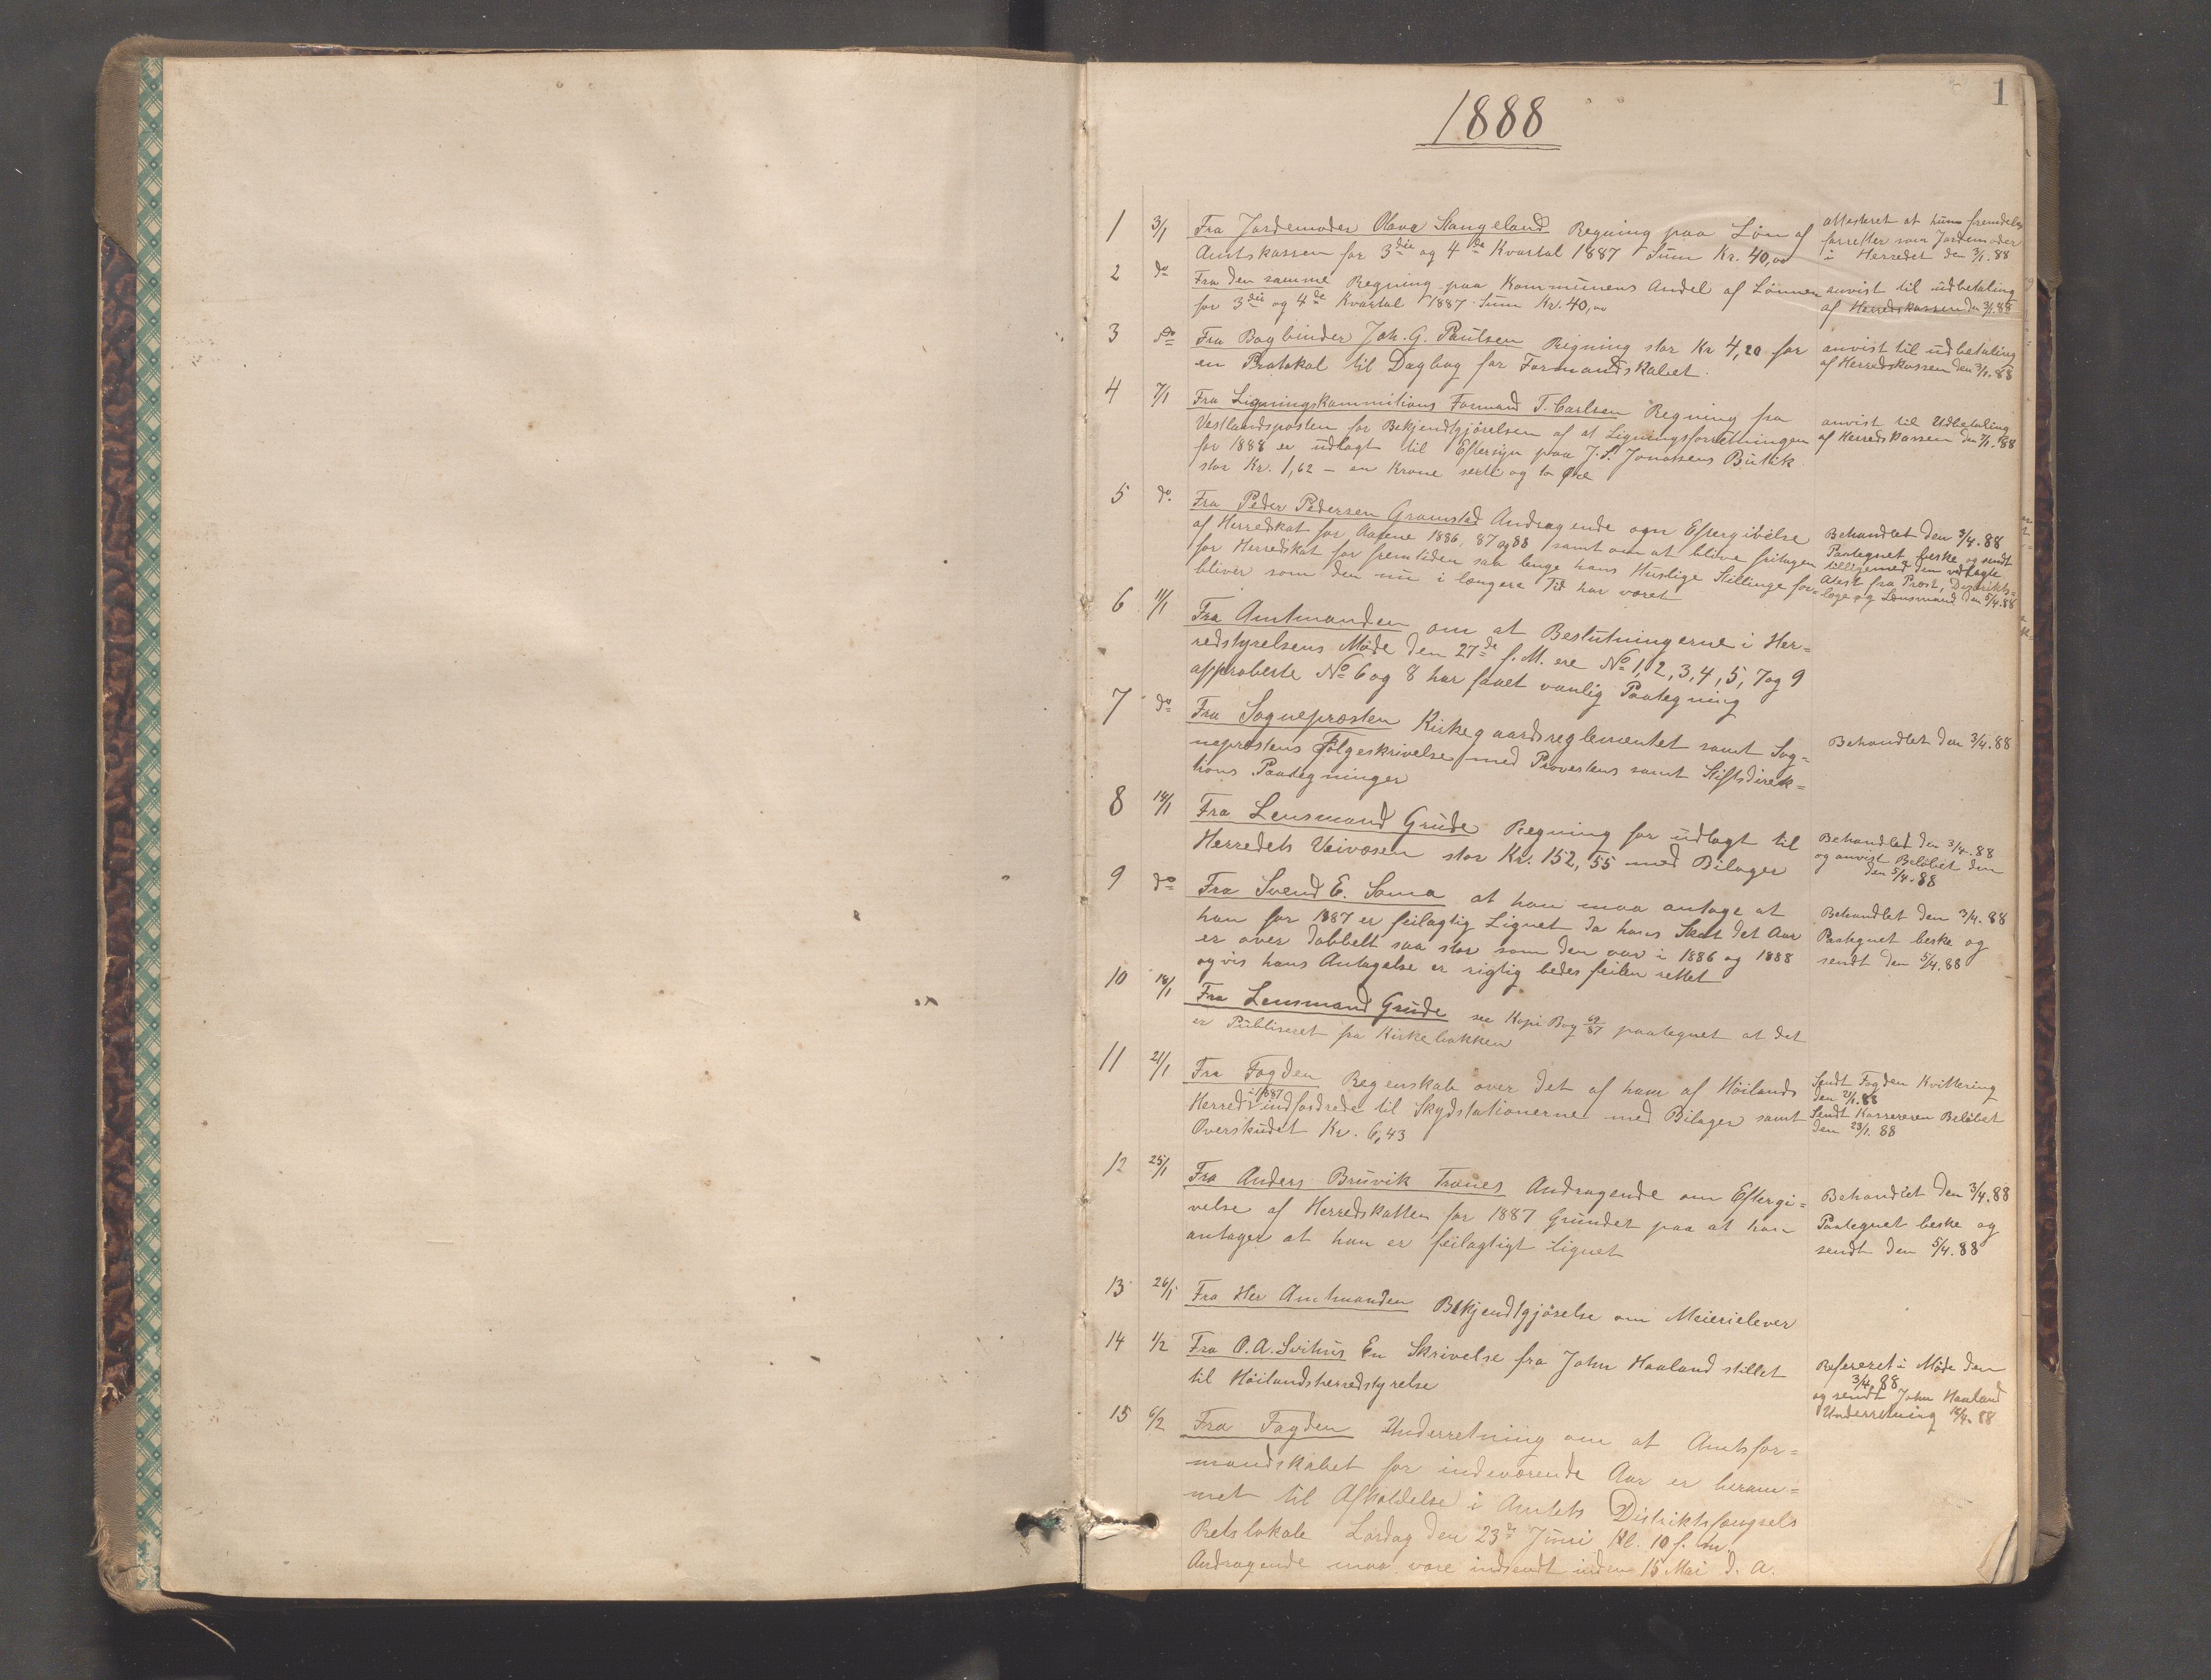 1
1888
1 3/1 Fra Jordemoder Olava Stangeland Regning paa Løn af
Amtskassen for 3die og 4de Kvartal 1887 Sum Kr. 40,00
attesteret at hun fremdeles
forretter som Jordemoder
i Herredet den 3/1. 88
2 do Fra den samme Regning paa Kommunens Andel af Lønnen
for 3die og 4de Kvartal 1887 Sum Kr. 40,00
anvist til udbetaling
af Herredskassen den 3/1. 88
3 do Fra Bogbinder Joh. G. Paulsen Regning stor Kr 4,20 for
en Protokol til Dagbog for Formandskabet.
anvist til udbetaling
af Herredskassen den 3/1. 88
4 7/1 Fra Ligningskommitions Formand T. Carlsen Regning fra
Vestlandsposten for Bekjendtgjørelsen af at Ligningsforretningen
for 1888 er udlagt til Eftersyn paa J. S. Jonassens Butik
stor Kr. 1,62 – en Krone sexti og to Øre
anvist til Udbetaling
af Herredskassen den 7/1. 88
5 do. Fra Peder Pedersen Gramstad Andragende om Eftergivelse
af Herredskat for Aarene 1886, 87 og 88 samt om at blive fritagen
for Herredskat for fremtiden saa lenge hans Huslige Stillinge for=
bliver som den nu i længere Tid har været
Behandlet den 3/4. 88
Paategnet beske og sendt
tilligemed den vedlagte
Atest fra Præst, Distrikts=
læge og Lensmand den 5/4. 88
6 11/1 Fra Amtmanden om at Beslutningerne i Her=
redstyrelsens Møde den 27de f. M. ere No 1, 2, 3, 4, 5, 7 og 9
approberte No 6 og 8 har faaet vanlig Paategning
7 do Fra Sognepræsten Kirkegaardsreglementet samt Sog=
nepræstens Følgeskrivelse med Provestens samt Stiftsdirek=
tions Paategninger
Behandlet den 3/4. 88
8 14/1 Fra Lensmand Grude Regning for udlagt til
Herredets Veivæsen stor Kr. 152,55 med Bilager
Behandled den 3/4. 88
og anvist Beløbet den
den 5/4. 88
9 do Fra Svend E. Soma at han maa antage at
han for 1887 er feilagtig Lignet da hans Skat det Aar
er over dobbelt saa stor som den var i 1886 og 1888
og vis hans Antagelse er rigtig bedes feilen rettet
Behandlet den 3/4. 88
Paategnet beske og
sendt den 5/4. 88
10 18/1 Fra Lensmand Grude see Kopi Bog 69/87 paategnet at det
er Publiseret fra Kirkebakken
11 21/1 Fra Fogden Regenskab over det af ham af Høilands
Herred i 1887 indfordrede til Skydstationerne med Bilager samt
Overskudet Kr. 6,43
Sendt Fogden Kvittering
den 21/1. 88
Sendt Kassereren Beløbet
den 23/1. 88
12 25/1 Fra Anders Bruvik Tranes Andragende om Eftergi=
velse af Herredskatten for 1887 Grundet paa at han
antager at han er feilagtigt Lignet
Behandlet den 3/4. 88
Paategnet beske og
sendt den 5/4. 88
13 26/1 Fra Her Amtmanden Bekjendtgjørelse om Meierielever
14 1/2 Fra O. A. Svihus En Skrivelse fra John Haaland stillet
til Høilandsherredstyrelse
Refereret i Møde den
3/4. 88
og sendt John Haaland
Underretning 14/4. 88
15 6/2 Fra Fogden Underretning om at Amtsfor=
mandskabet for indeværende Aar er beram=
met til Afholdelse i Amtets Distriktsfængsels
Retslokale Lørdag den 23de Juni Kl. 10 f. m.
Andragende maa være indsendt inden 15 Mai d. A.